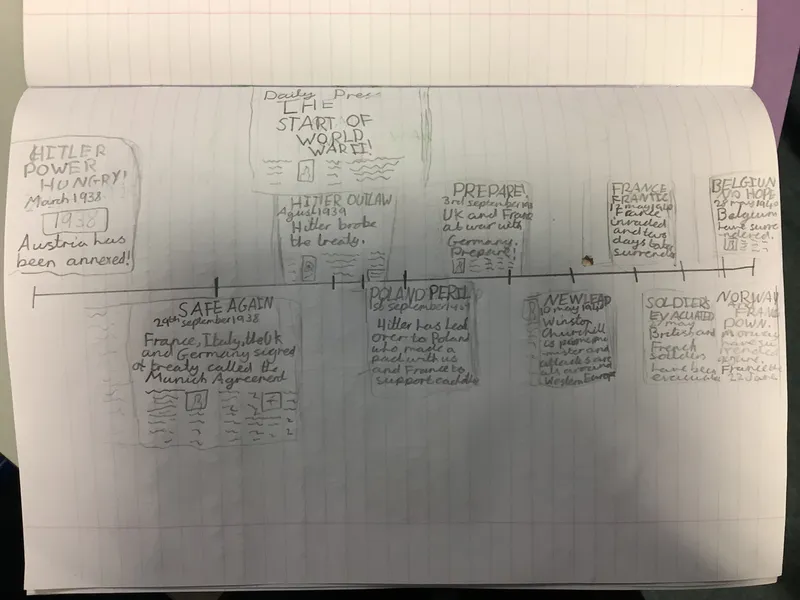 Daily Press
THE
START OF
WORLD
WAR II!
HITLER
POWER
HUNGRY!
March 1938
1938
Austria has
been annexed!
SAFE AGAIN
29th september 1938
France, Italy, the UK
and Germany signed
a treaty called the
Munich Agreement
HITLER OUTLAW
1939
Hitler broke
the treaty.
POLAND PERIL
september
Hitler has
over to Poland
who made a
pact with us
and France to
support
PREPARE!
3rd september
UK and France
at war with
Germany.
Prepare!
NEW LEAD
10 may 1940
Winston
Churchill
is
and
around
Western Europ
FRANCE
FRANTIC
12 may
France
invaded
and two
days later
surrende
SOLDIERS
EVACUATED
may
British and
French
soldiers
have been
BELGIUM
NO HOPE
28 may 1940
Belgium
have surre
ndered.
NORWAY
FRAN
DOWN.
have su
rendered
France
22 June